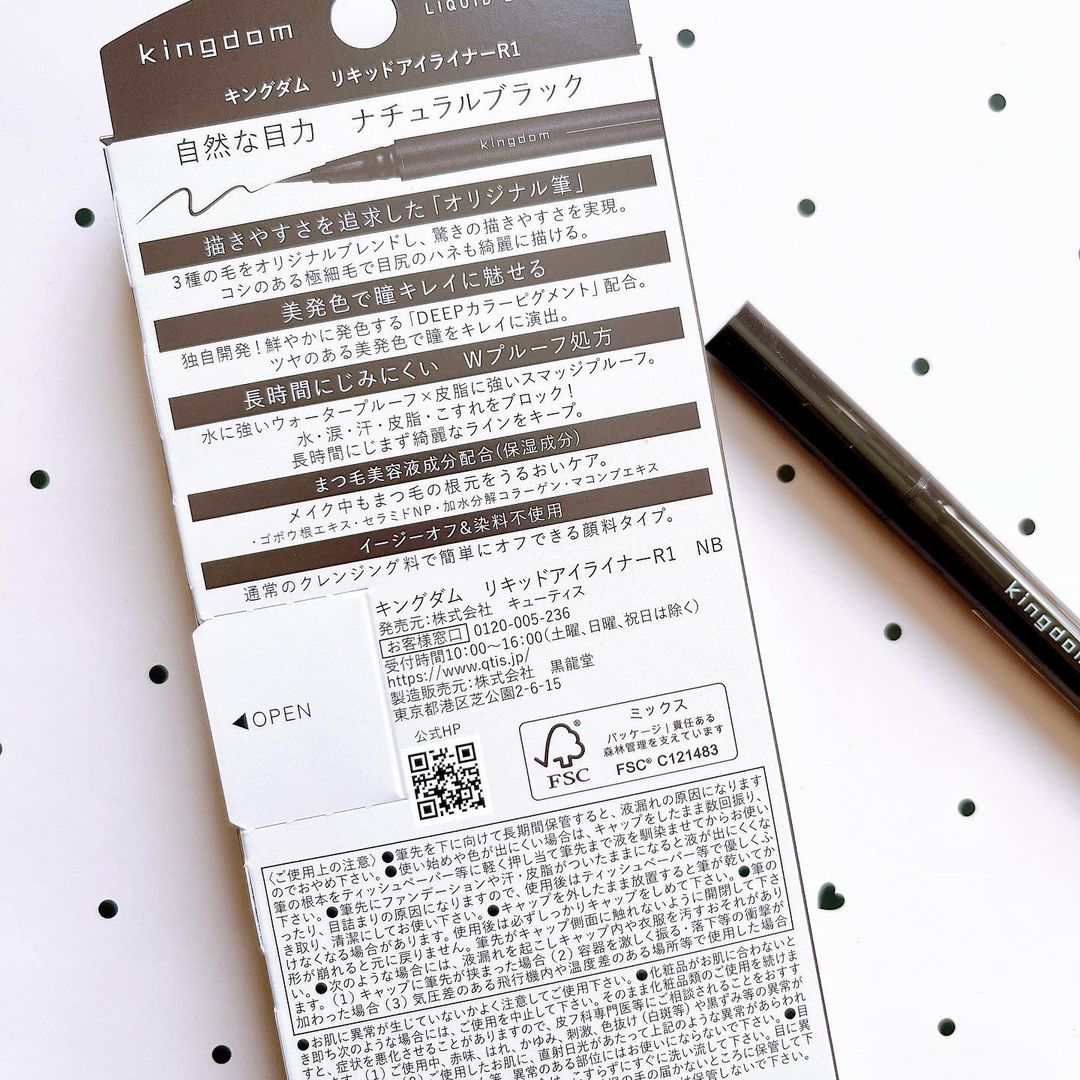 kingdom
LIQUID
キングダム リキッドアイライナーR1
自然な目力 ナチュラルブラック
kingdom
描きやすさを追求した「オリジナル筆」
3種の毛をオリジナルブレンドし、驚きの描きやすさを実現。
コシのある極細毛で目尻のハネも綺麗に描ける。
美発色で瞳キレイに魅せる
独自開発!鮮やかに発色する「DEEPカラーピグメント」配合。
ツヤのある美発色で瞳をキレイに演出。
長時間にじみにくい Wプルーフ処方
水に強いウォータープルーフ×皮脂に強いスマッジプルーフ。
水・涙・汗・皮脂・こすれをブロック!
長時間にじまず綺麗なラインをキープ。
まつ毛美容液成分配合(保湿成分)
メイク中もまつ毛の根元をうるおいケア。
・ゴボウ根エキス・セラミドNP・加水分解コラーゲン・マコンブエキス
イージーオフ&染料不使用
通常のクレンジング料で簡単にオフできる顔料タイプ。
キングダム リキッドアイライナーR1 NB
発売元:株式会社 キューティス
お客様窓口 0120-005-236
受付時間10:00〜16:00(土曜、日曜、祝日は除く)
https://www.qtis.jp/
製造販売元:株式会社 黒龍堂
東京都港区芝公園2-6-15
公式HP
OPEN
FSC
ミックス
パッケージ|責任ある
森林管理を支えています
FSC® C121483
〈ご使用上の注意〉●筆先を下に向けて長期間保管すると、液漏れの原因になります
のでおやめ下さい。●使い始めや色が出にくい場合は、キャップをしたまま数回振り、
筆の根本をティッシュペーパー等に軽く押し当て筆先まで液を馴染ませてからお使い
下さい。●筆先にファンデーションや汗・皮脂がついたままになると液が出にくくな
ったり、目詰まりの原因になりますので、使用後はティッシュペーパー等で優しくふ
き取り、清潔にしてお使い下さい。●キャップを外したまま放置すると筆が乾いてか
けなくなる場合があります。使用後は必ずしっかりキャップをしめて下さい。●筆の
形が崩れると元に戻りません。筆先がキャップ側面に触れないように開閉して下さ
い。●次のような場合には、液漏れを起こしキャップ内や衣服を汚すおそれがあり
ます。(1)キャップに筆先が挟まった場合(2)容器を激しく振る・落下等の衝撃が
加わった場合(3)気圧差のある飛行機内や温度差のある場所等で使用した場合
●お肌に異常が生じていないかよく注意してご使用下さい。●化粧品がお肌に合わないと
き即ち次のような場合には、ご使用を中止して下さい。そのまま化粧品類のご使用を続けま
すと、症状を悪化させることがありますので、皮フ科専門医等にご相談されることをおすす
めします。(1)ご使用中、赤味、はれ、かゆみ、刺激、色抜け(白斑等)や黒ずみ等の異常が
kingdom